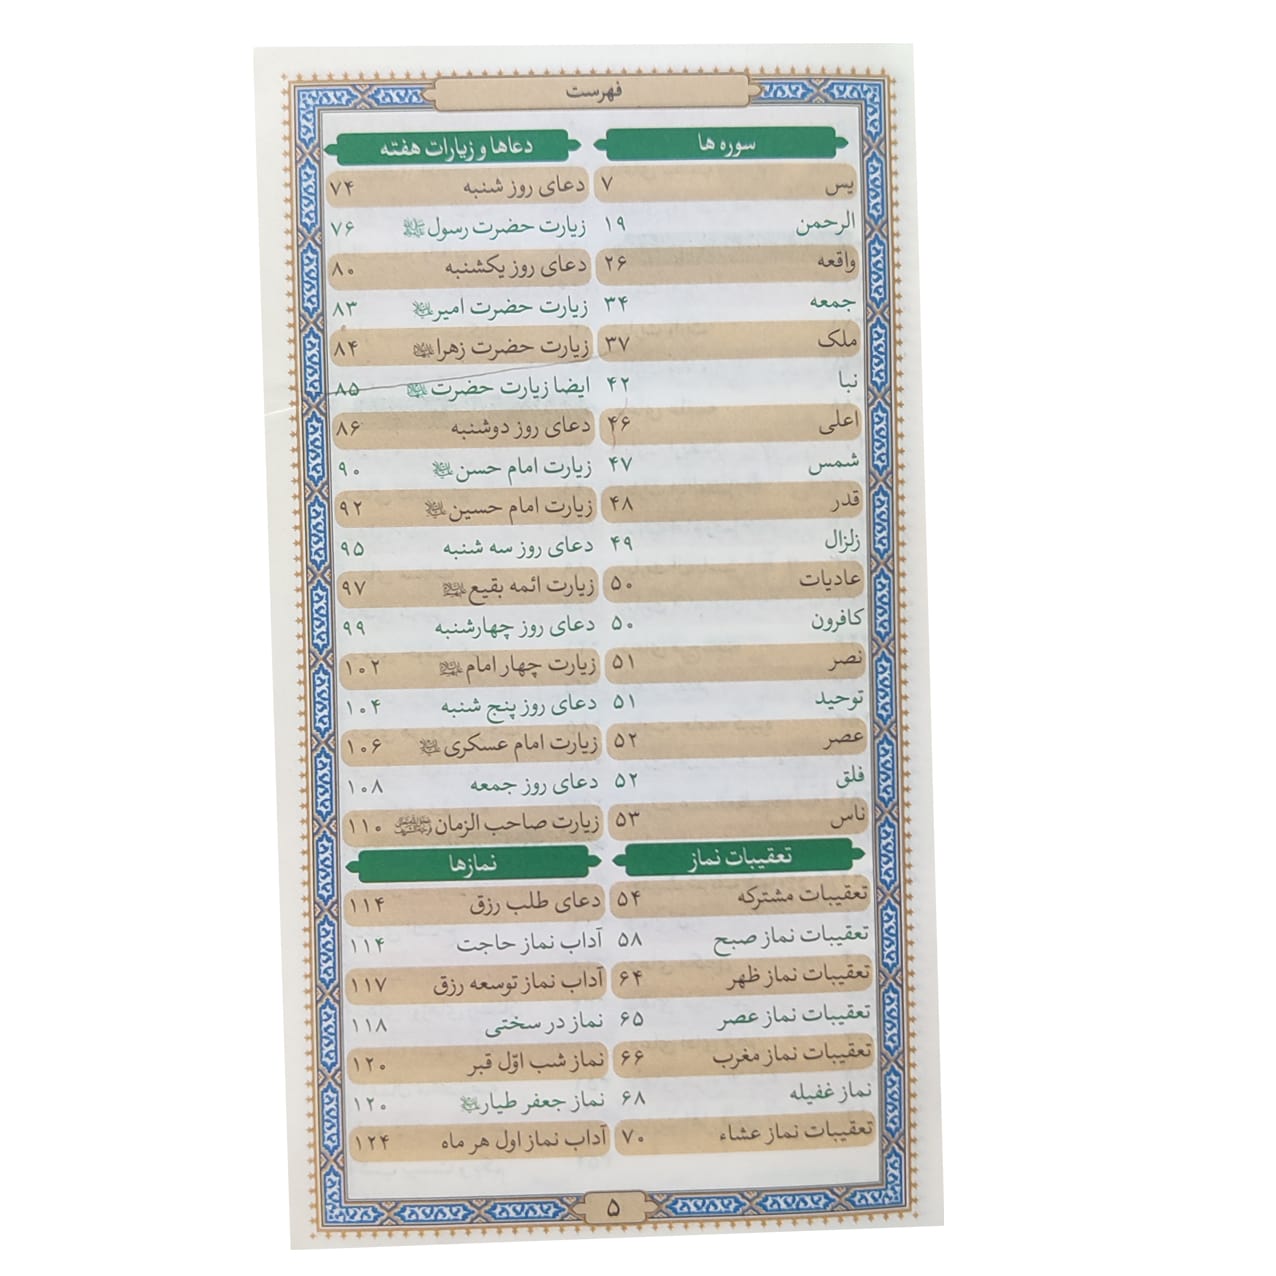 فهرست
سوره ها
یس ۷
الرحمن ۱۹
واقعه ۲۶
جمعه ۳۴
ملک ۳۷
نبا ۴۲
اعلی ۴۶
شمس ۴۷
قدر ۴۸
زلزال ۴۹
عادیات ۵۰
کافرون ۵۰
نصر ۵۱
توحید ۵۱
عصر ۵۲
فلق ۵۲
ناس ۵۳
تعقیبات نماز
تعقیبات مشترکه ۵۴
تعقیبات نماز صبح ۵۸
تعقیبات نماز ظهر ۶۴
تعقیبات نماز عصر ۶۵
تعقیبات نماز مغرب ۶۶
نماز غفیله ۶۸
تعقیبات نماز عشاء ۷۰
دعاها و زیارات هفته
دعای روز شنبه ۷۴
زیارت حضرت رسول ۷۶
دعای روز یکشنبه ۸۰
زیارت حضرت امیر ۸۳
زیارت حضرت زهرا ۸۴
ایضا زیارت حضرت ۸۵
دعای روز دوشنبه ۸۶
زیارت امام حسن ۹۰
زیارت امام حسین ۹۲
دعای روز سه شنبه ۹۵
زیارت ائمه بقیع ۹۷
دعای روز چهارشنبه ۹۹
زیارت چهار امام ۱۰۲
دعای روز پنج شنبه ۱۰۴
زیارت امام عسکری ۱۰۶
دعای روز جمعه ۱۰۸
زیارت صاحب الزمان ۱۱۰
نمازها
دعای طلب رزق ۱۱۴
آداب نماز حاجت ۱۱۴
آداب نماز توسعه رزق ۱۱۷
نماز در سختی ۱۱۸
نماز شب اوّل قبر ۱۲۰
نماز جعفر طیار ۱۲۰
آداب نماز اول هر ماه ۱۲۴
۵